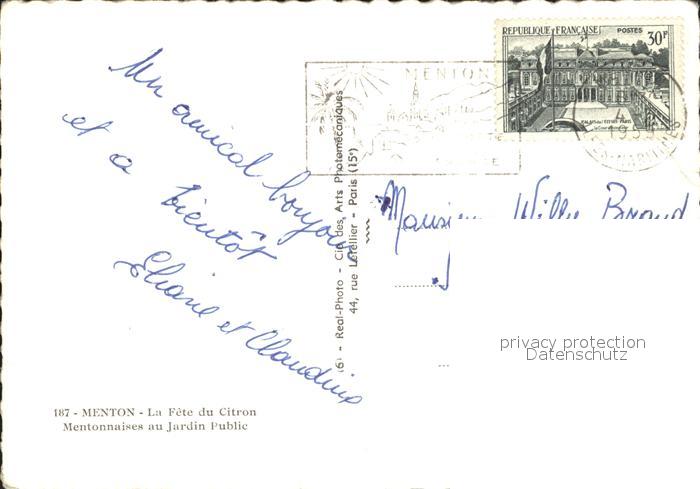 Un amical bonjour
et a bientôt
Eliane et Claudine
187 - MENTON - La Fête du Citron
Mentonnaises au Jardin Public
(6) - Real-Photo - Cie des Arts Photomécaniques
44, rue Letellier - Paris (15e)
MENTON
REPUBLIQUE FRANÇAISE
POSTES
30F
PALAIS DE L'ELYSEE PARIS
Monsieur Willy
privacy protection
Datenschutz